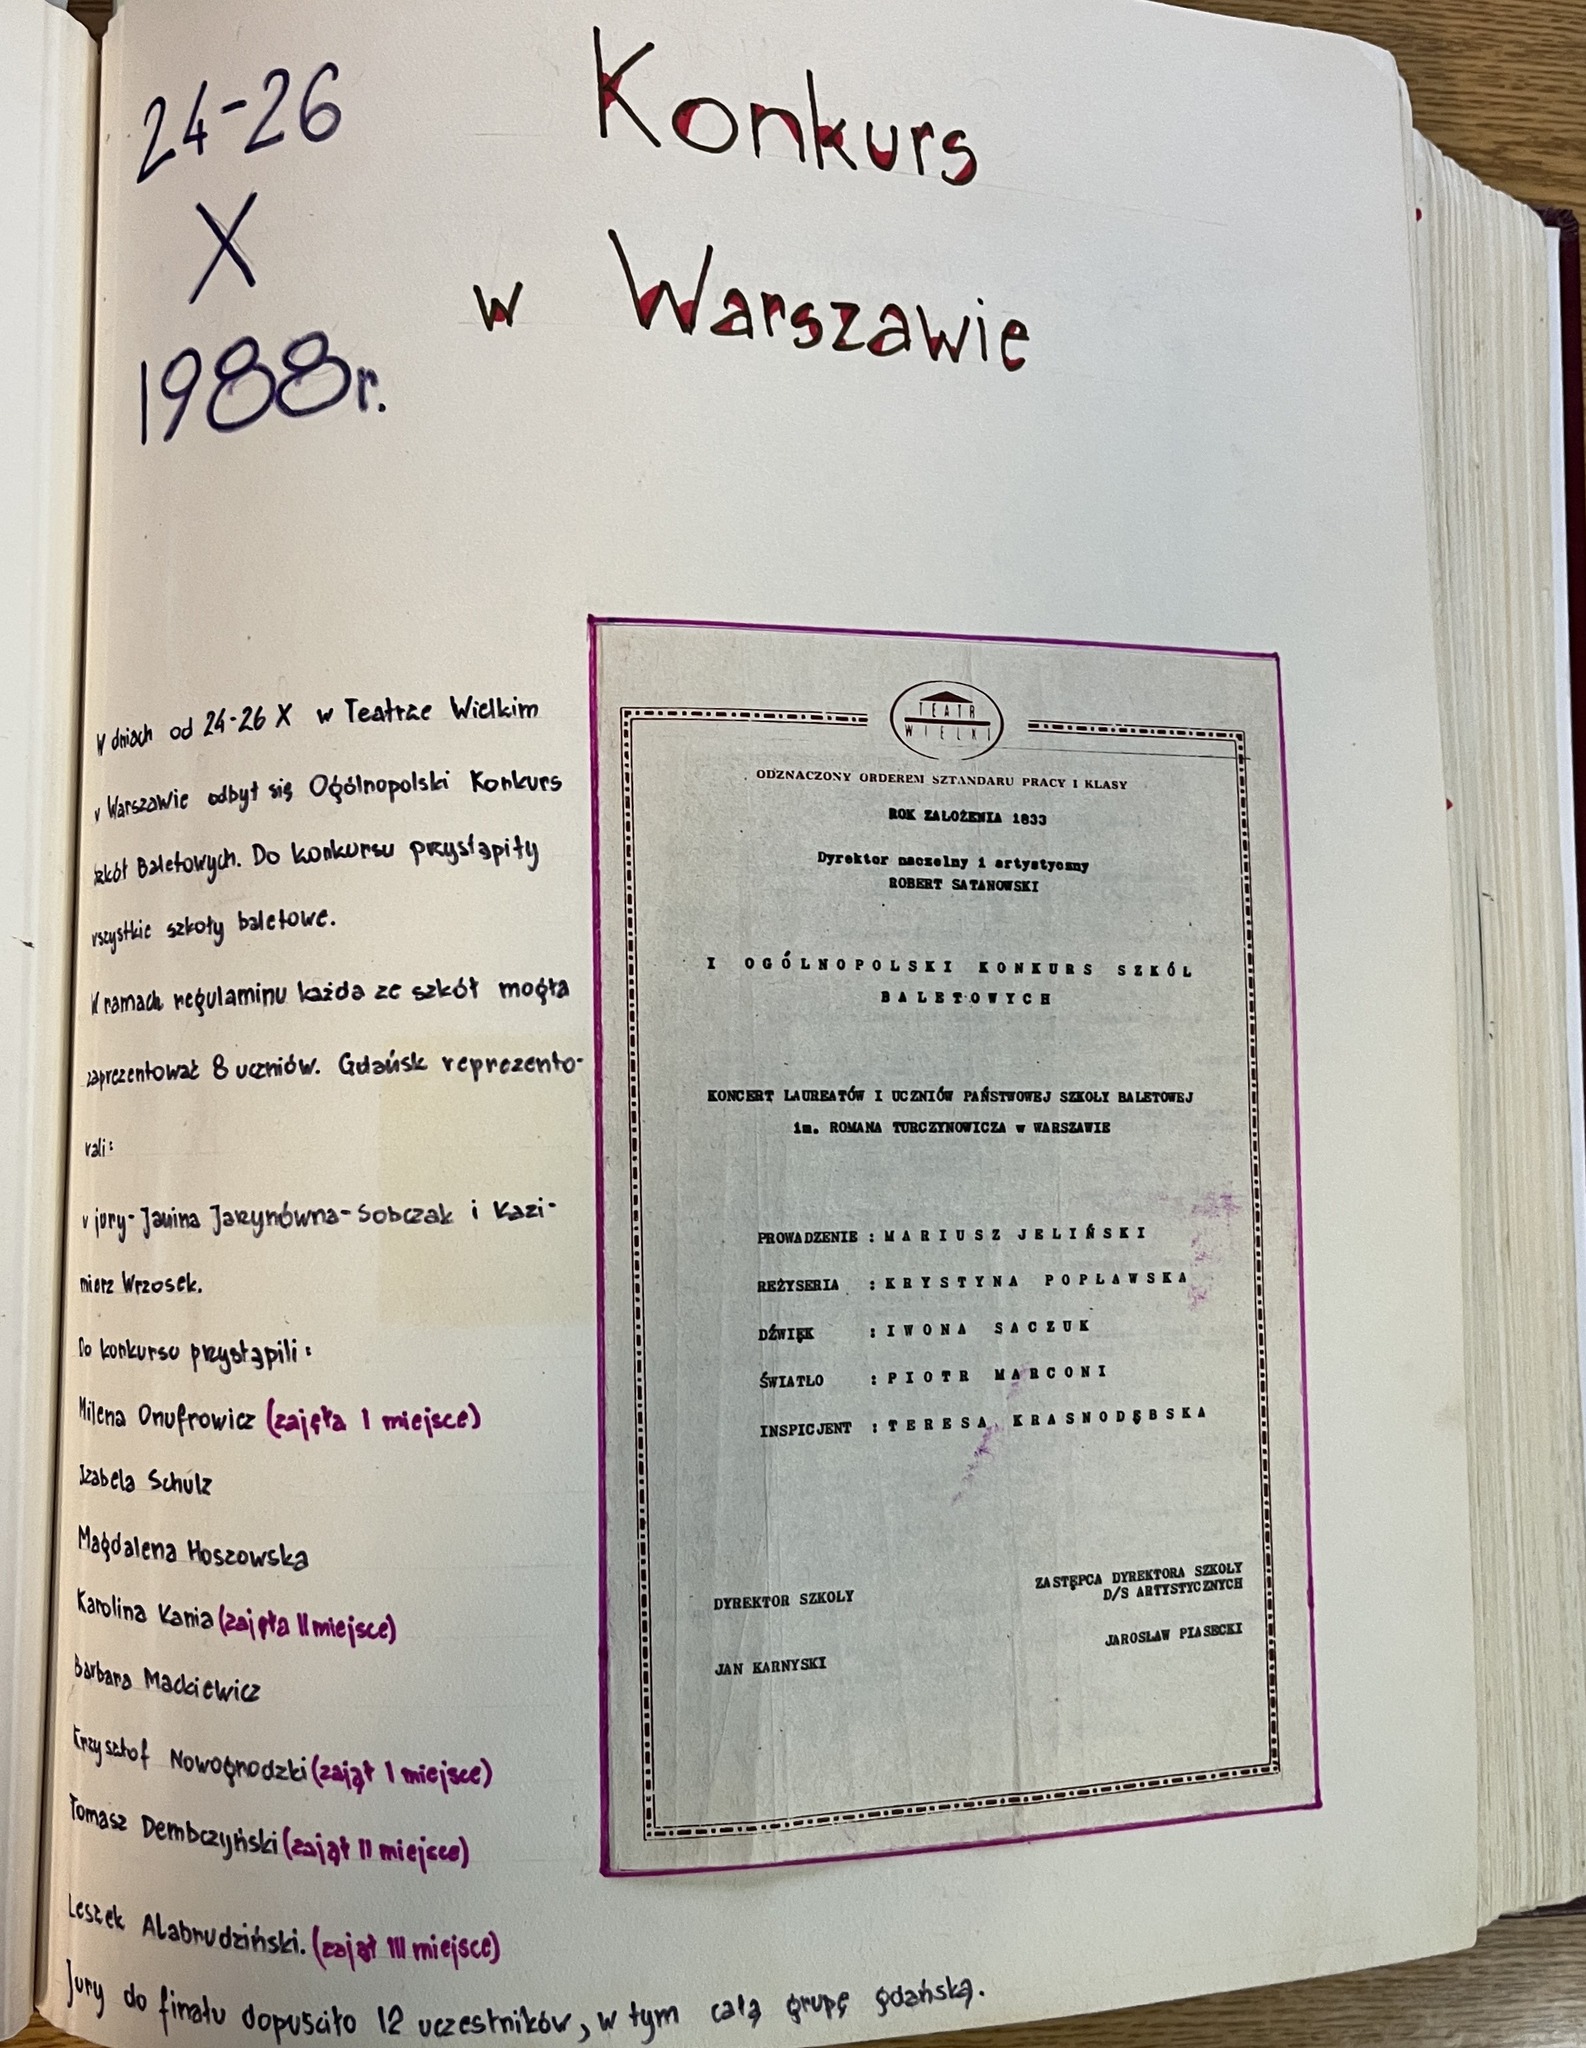 24-26
X
1988r.
Konkurs
w Warszawie
W dniach od 24-26 X w Teatrze Wielkim
w Warszawie odbył się Ogólnopolski Konkurs
Szkół Baletowych. Do konkursu przystąpiły
wszystkie szkoły baletowe.
W ramach regulaminu każda ze szkół mogła
zaprezentować 8 uczniów. Gdańsk reprezento-
wali:
w jury- Janina Jarzynówna-Sobczak i Kazi-
mierz Wrzosek.
Do konkursu przystąpili:
Milena Onufrowicz (zajęła I miejsce)
Izabela Schulz
Magdalena Hoszowska
Karolina Kania (zajęła II miejsce)
Barbara Mackiewicz
Krzysztof Nowogrodzki (zajął I miejsce)
Tomasz Dembczyński (zajął II miejsce)
Leszek Alabrudziński. (zajął III miejsce)
Jury do finału dopuściło 12 uczestników, w tym całą grupę gdańską.
TEATR
WIELKI
ODZNACZONY ORDEREM SZTANDARU PRACY I KLASY
ROK ZAŁOŻENIA 1833
Dyrektor naczelny i artystyczny
ROBERT SATANOWSKI
I OGÓLNOPOLSKI KONKURS SZKÓL
BALETOWYCH
KONCERT LAUREATÓW I UCZNIÓW PAŃSTWOWEJ SZKOŁY BALETOWEJ
im. ROMANA TURCZYNOWICZA w WARSZAWIE
PROWADZENIE : MARIUSZ JELIŃSKI
REŻYSERIA : KRYSTYNA POPŁAWSKA
DŹWIĘK : IWONA SACZUK
ŚWIATŁO : PIOTR MARCONI
INSPICJENT : TERESA KRASNODĘBSKA
DYREKTOR SZKOŁY
JAN KARNYSKI
ZASTĘPCA DYREKTORA SZKOŁY
D/S ARTYSTYCZNYCH
JAROSŁAW PIASECKI